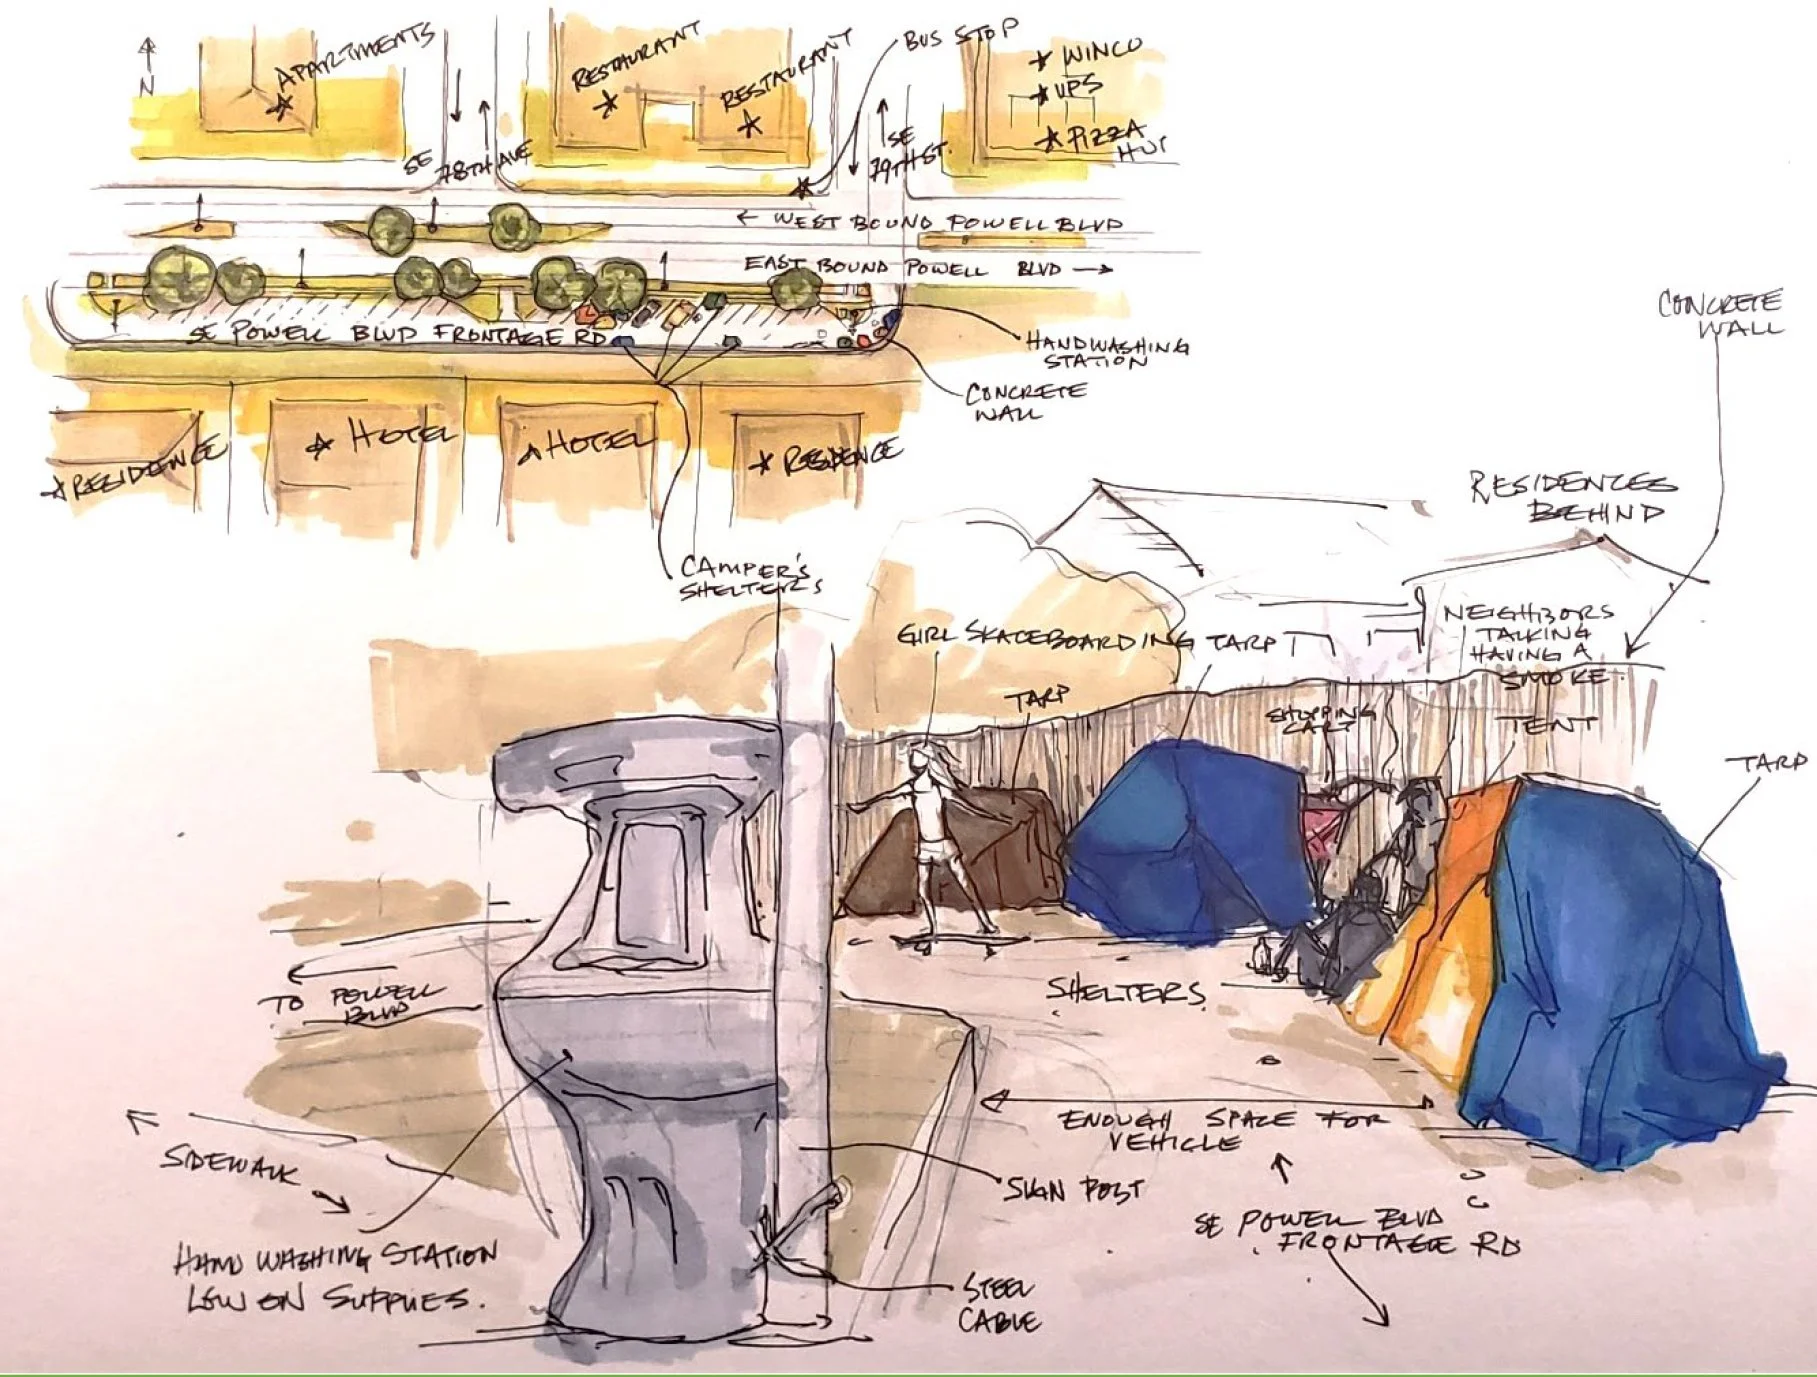 N
APARTMENTS
RESTAURANT
RESTAURANT
BUS STOP
WINCO
UPS
PIZZA
HUT
SE
78TH AVE
SE
79TH ST.
← WEST BOUND POWELL BLVD
EAST BOUND POWELL BLVD →
SE POWELL BLVD FRONTAGE RD
HANDWASHING
STATION
CONCRETE
WALL
RESIDENCE
HOTEL
HOTEL
RESIDENCE
CAMPER'S
SHELTER'S
CONCRETE
WALL
RESIDENCES
BEHIND
GIRL SKATEBOARDING
TARP
NEIGHBORS
TALKING
HAVING A
SMOKE
TARP
SHOPPING
CART
TENT
TARP
TO POWELL
BLVD
SHELTERS
ENOUGH SPACE FOR
VEHICLE
SIDEWALK
SIGN POST
SE POWELL BLVD
FRONTAGE RD
HAND WASHING STATION
LOW ON SUPPLIES.
STEEL
CABLE